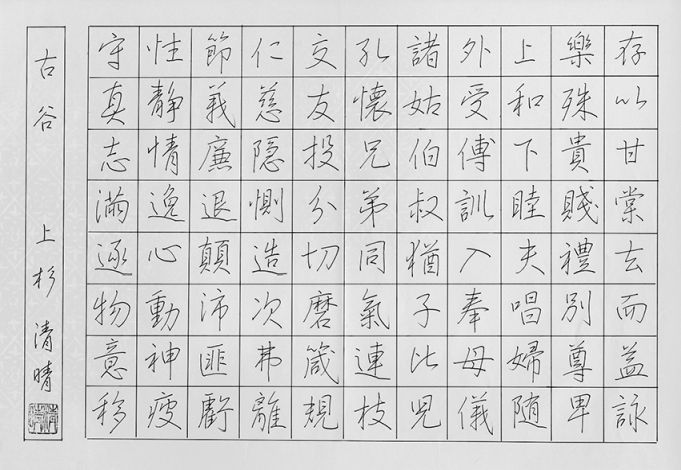 存以甘棠去而益詠
樂殊貴賤禮別尊卑
上和下睦夫唱婦随
外受傅訓入奉母儀
諸姑伯叔猶子比児
孔懐兄弟同氣連枝
交友投分切磨箴規
仁慈隠惻造次弗離
節義廉退顛沛匪虧
性静情逸心動神疲
守真志滿逐物意移
古谷 上杉清晴